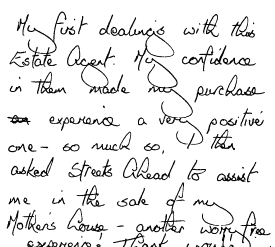 My first dealings with this
Estate Agent. My confidence
in them made my purchase
experience a very positive
one - so much so, I then
asked Streets Ahead to assist
me in the sale of my
Mother's house - another worry free
experience